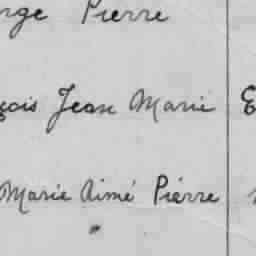 rge Pierre
çois Jean Marie
Marie Aimé Pierre